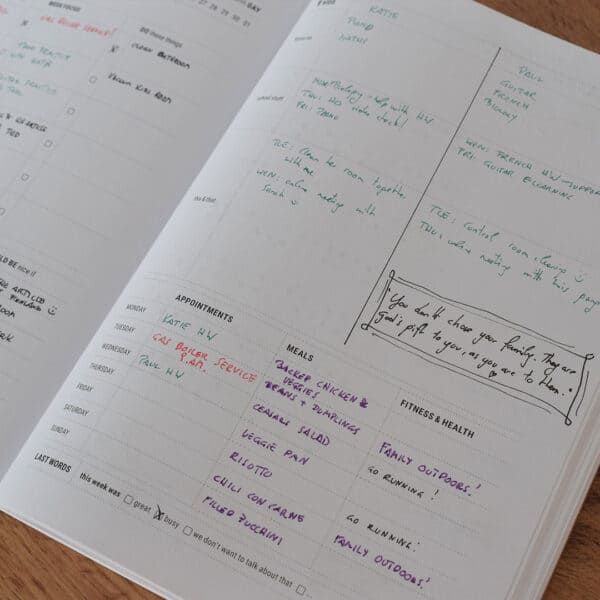 27 28 29 30 31
DAY
WEEK FOCUS
GAS BOILER SERVICE!
DO three things
CLEAN BATHROOM
VACUUM KIDS ROOM
nice if
KIDS
KATIE
PIANO
MATHS
PAUL
GUITAR
FRENCH
BIOLOGY
school stuff
MON: Biology - help with HW
THU: HD video check!
FRI: PIANO
WEN: FRENCH HW - SUPPORT
FRI: GUITAR E-LEARNING
this & that
TUE: Clean her room together
with me
WEN: online meeting with
Sarah ☺
TUE: Control room cleanup ☺
THU: online meeting with his
"You don't chose your family. They are
God's gift to you, as you are to them."
APPOINTMENTS
MONDAY
KATIE HW
TUESDAY
GAS BOILER SERVICE
8 AM.
WEDNESDAY
PAUL HW
THURSDAY
FRIDAY
SATURDAY
SUNDAY
MEALS
BACKED CHICKEN &
VEGGIES
BEANS + DUMPLINGS
CEASARS SALAD
VEGGIE PAN
RISOTTO
CHILI CON CARNE
FILLED ZUCCHINI
FITNESS & HEALTH
FAMILY OUTDOORS!
GO RUNNING!
GO RUNNING!
FAMILY OUTDOORS!
LAST WORDS this week was great busy we don't want to talk about that